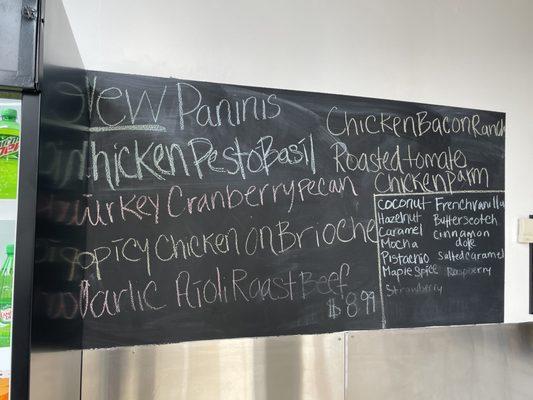 New Paninis
Chicken Pesto Basil
Turkey Cranberry pecan
Spicy Chicken on Brioche
Garlic Aioli Roast Beef
$8.99
Chicken Bacon Ranch
Roasted tomato
Chicken Parm
Coconut Frenchvanilla
Hazelnut Butterscotch
Caramel Cinnamon
Mocha dolce
Pistachio Salted Caramel
Maple Spice Raspberry
Strawberry